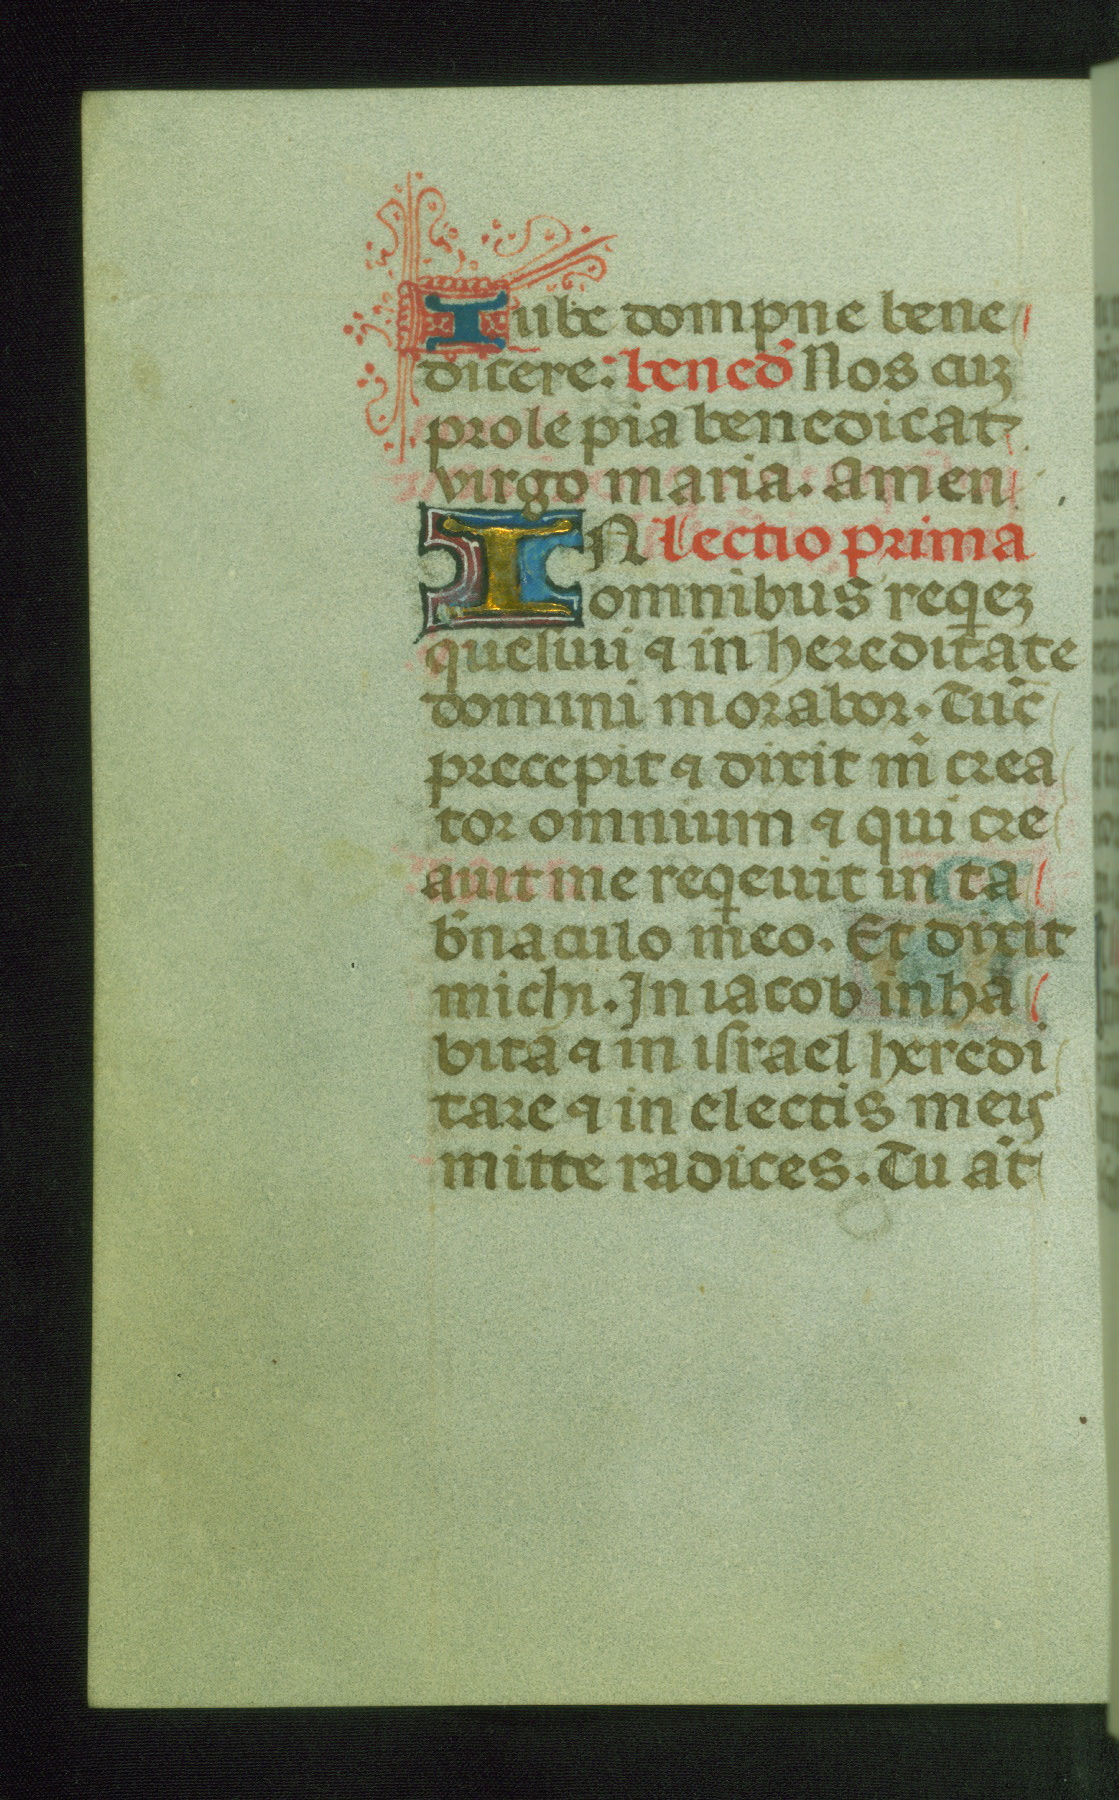 Iube dompne bene
dicere: bened̄ Nos cuꝫ
prole pia benedicat
virgo maria. amen
IN lectio prima
omnibus req̄eꝫ
quesiui ⁊ in hereditate
domini morabor. Tūc
precepit ⁊ dixit m̄ crea
tor omnium ⁊ qui cre
auit me req̄euit in ta
b̄naculo meo. Et dixit
michi. In iacob inha
bita ⁊ in israel heredi
tare ⁊ in electis meis
mitte radices. Tu āt